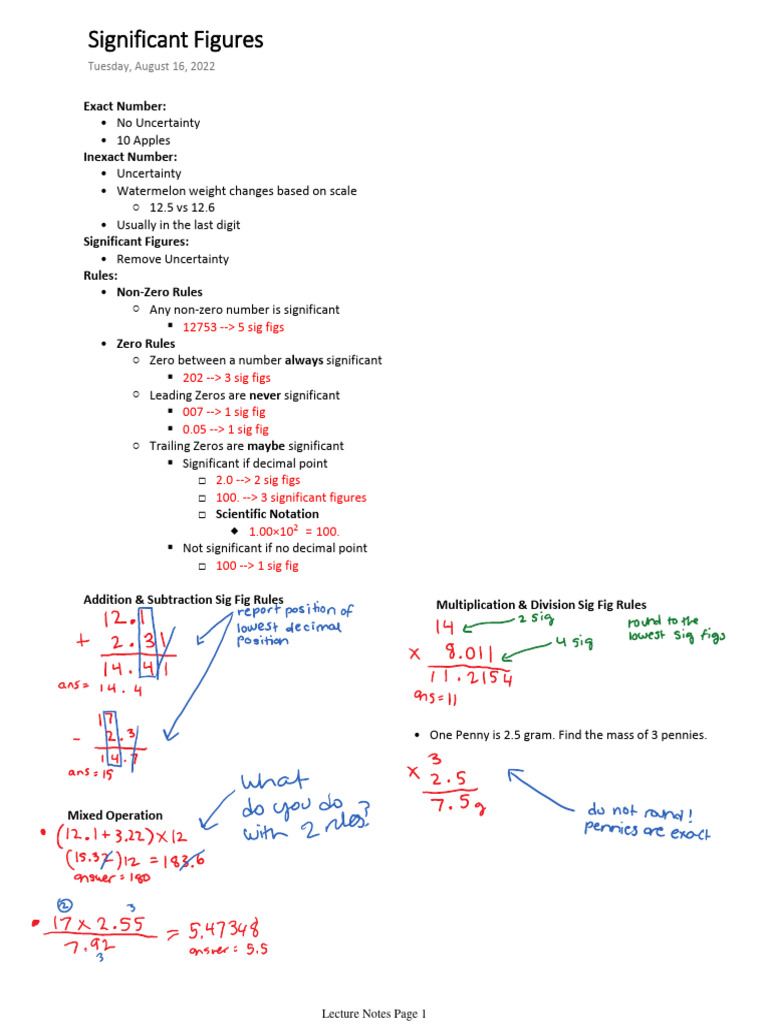 Significant Figures
Tuesday, August 16, 2022
Exact Number:
• No Uncertainty
• 10 Apples
Inexact Number:
• Uncertainty
• Watermelon weight changes based on scale
○ 12.5 vs 12.6
• Usually in the last digit
Significant Figures:
• Remove Uncertainty
Rules:
• Non-Zero Rules
○ Any non-zero number is significant
▪ 12753 --> 5 sig figs
• Zero Rules
○ Zero between a number always significant
▪ 202 --> 3 sig figs
○ Leading Zeros are never significant
▪ 007 --> 1 sig fig
▪ 0.05 --> 1 sig fig
○ Trailing Zeros are maybe significant
▪ Significant if decimal point
□ 2.0 --> 2 sig figs
□ 100. --> 3 significant figures
□ Scientific Notation
◆ 1.00×10² = 100.
▪ Not significant if no decimal point
□ 100 --> 1 sig fig
Addition & Subtraction Sig Fig Rules
12.1
+ 2.31
14.41
ans = 14.4
report position of
lowest decimal
position
17
- 2.3
14.7
ans = 15
Mixed Operation
• (12.1+3.22)×12
(15.32)12 = 183.6
answer = 180
what
do you do
with 2 rules?
② 3
• 17 × 2.55
7.92
3
= 5.47348
answer = 5.5
Multiplication & Division Sig Fig Rules
14 ← 2 sig
× 8.011 ← 4 sig
11.2154
ans = 11
round to the
lowest sig figs
• One Penny is 2.5 gram. Find the mass of 3 pennies.
3
× 2.5
7.5g
do not round!
pennies are exact
Lecture Notes Page 1